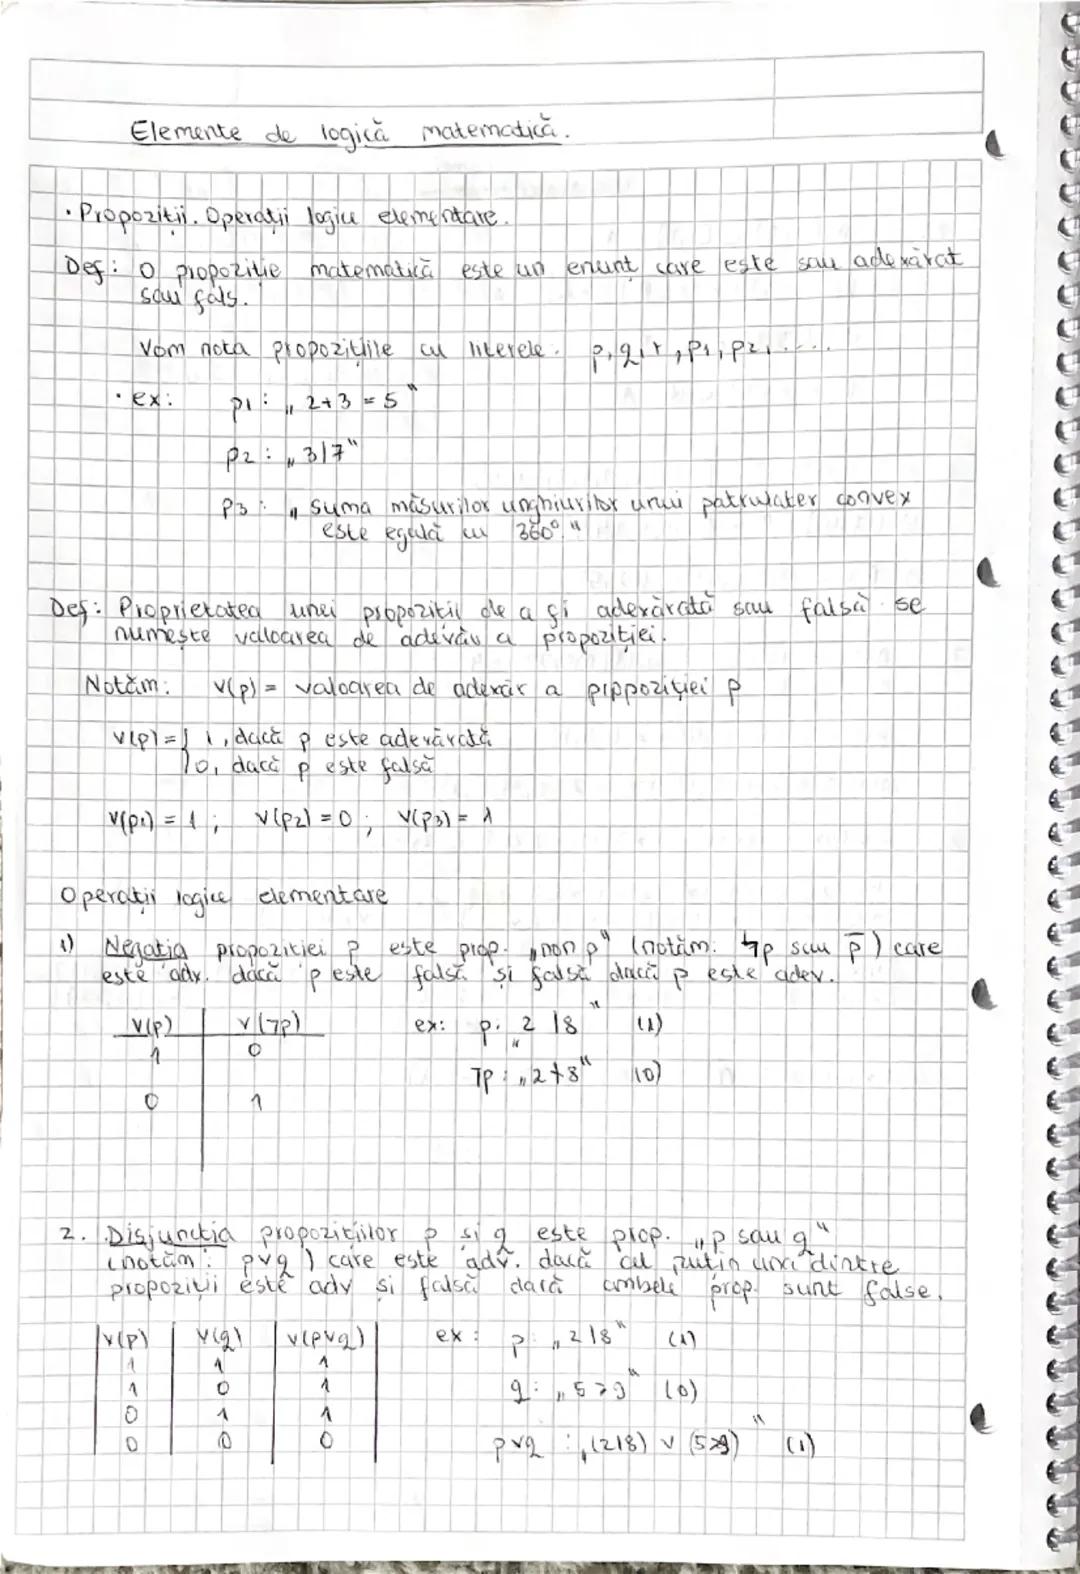 Elemente de logică matematică.
· Propoziții. Operații logice elementare.
Def: O propoziție matematică este un enunț care este sau adevărat
sau fals.
Vom nota propozițiile cu literele. p, q, r, p1, p2, ....
· ex: p1: „2+3 = 5"
p2: „3|7"
p3: „suma măsurilor unghiurilor unui patrulater convex
este egală cu 360°."
Def: Proprietatea unei propoziții de a fi adevărată sau falsă se
numește valoarea de adevăr a propoziției.
Notăm: v(p) = valoarea de adevăr a pippoziției p
v(p) = { 1, dacă p este adevărată
0, dacă p este falsă
v(p1) = 1; v(p2) = 0; v(p3) = 1
Operații logice elementare
1) Negația propoziției p este prop. „non p" (notăm: ¬p sau p̅) care
este adv. dacă p este falsă și falsă dacă p este adev.
v(p) v(¬p) ex: p: „2|8" (1)
1 0
¬p: „2∤8" (0)
0 1
2. Disjuncția propozițiilor p și q este prop. „p sau q"
(notăm: p∨q) care este adv. dacă cel puțin una dintre
propoziții este adv și falsă dacă ambele prop. sunt false.
v(p) v(q) v(p∨q) ex: p: „2|8" (1)
1 1 1
1 0 1 q: „5>9" (0)
0 1 1
0 0 0 p∨q: „(2|8) ∨ (5>9)" (1)